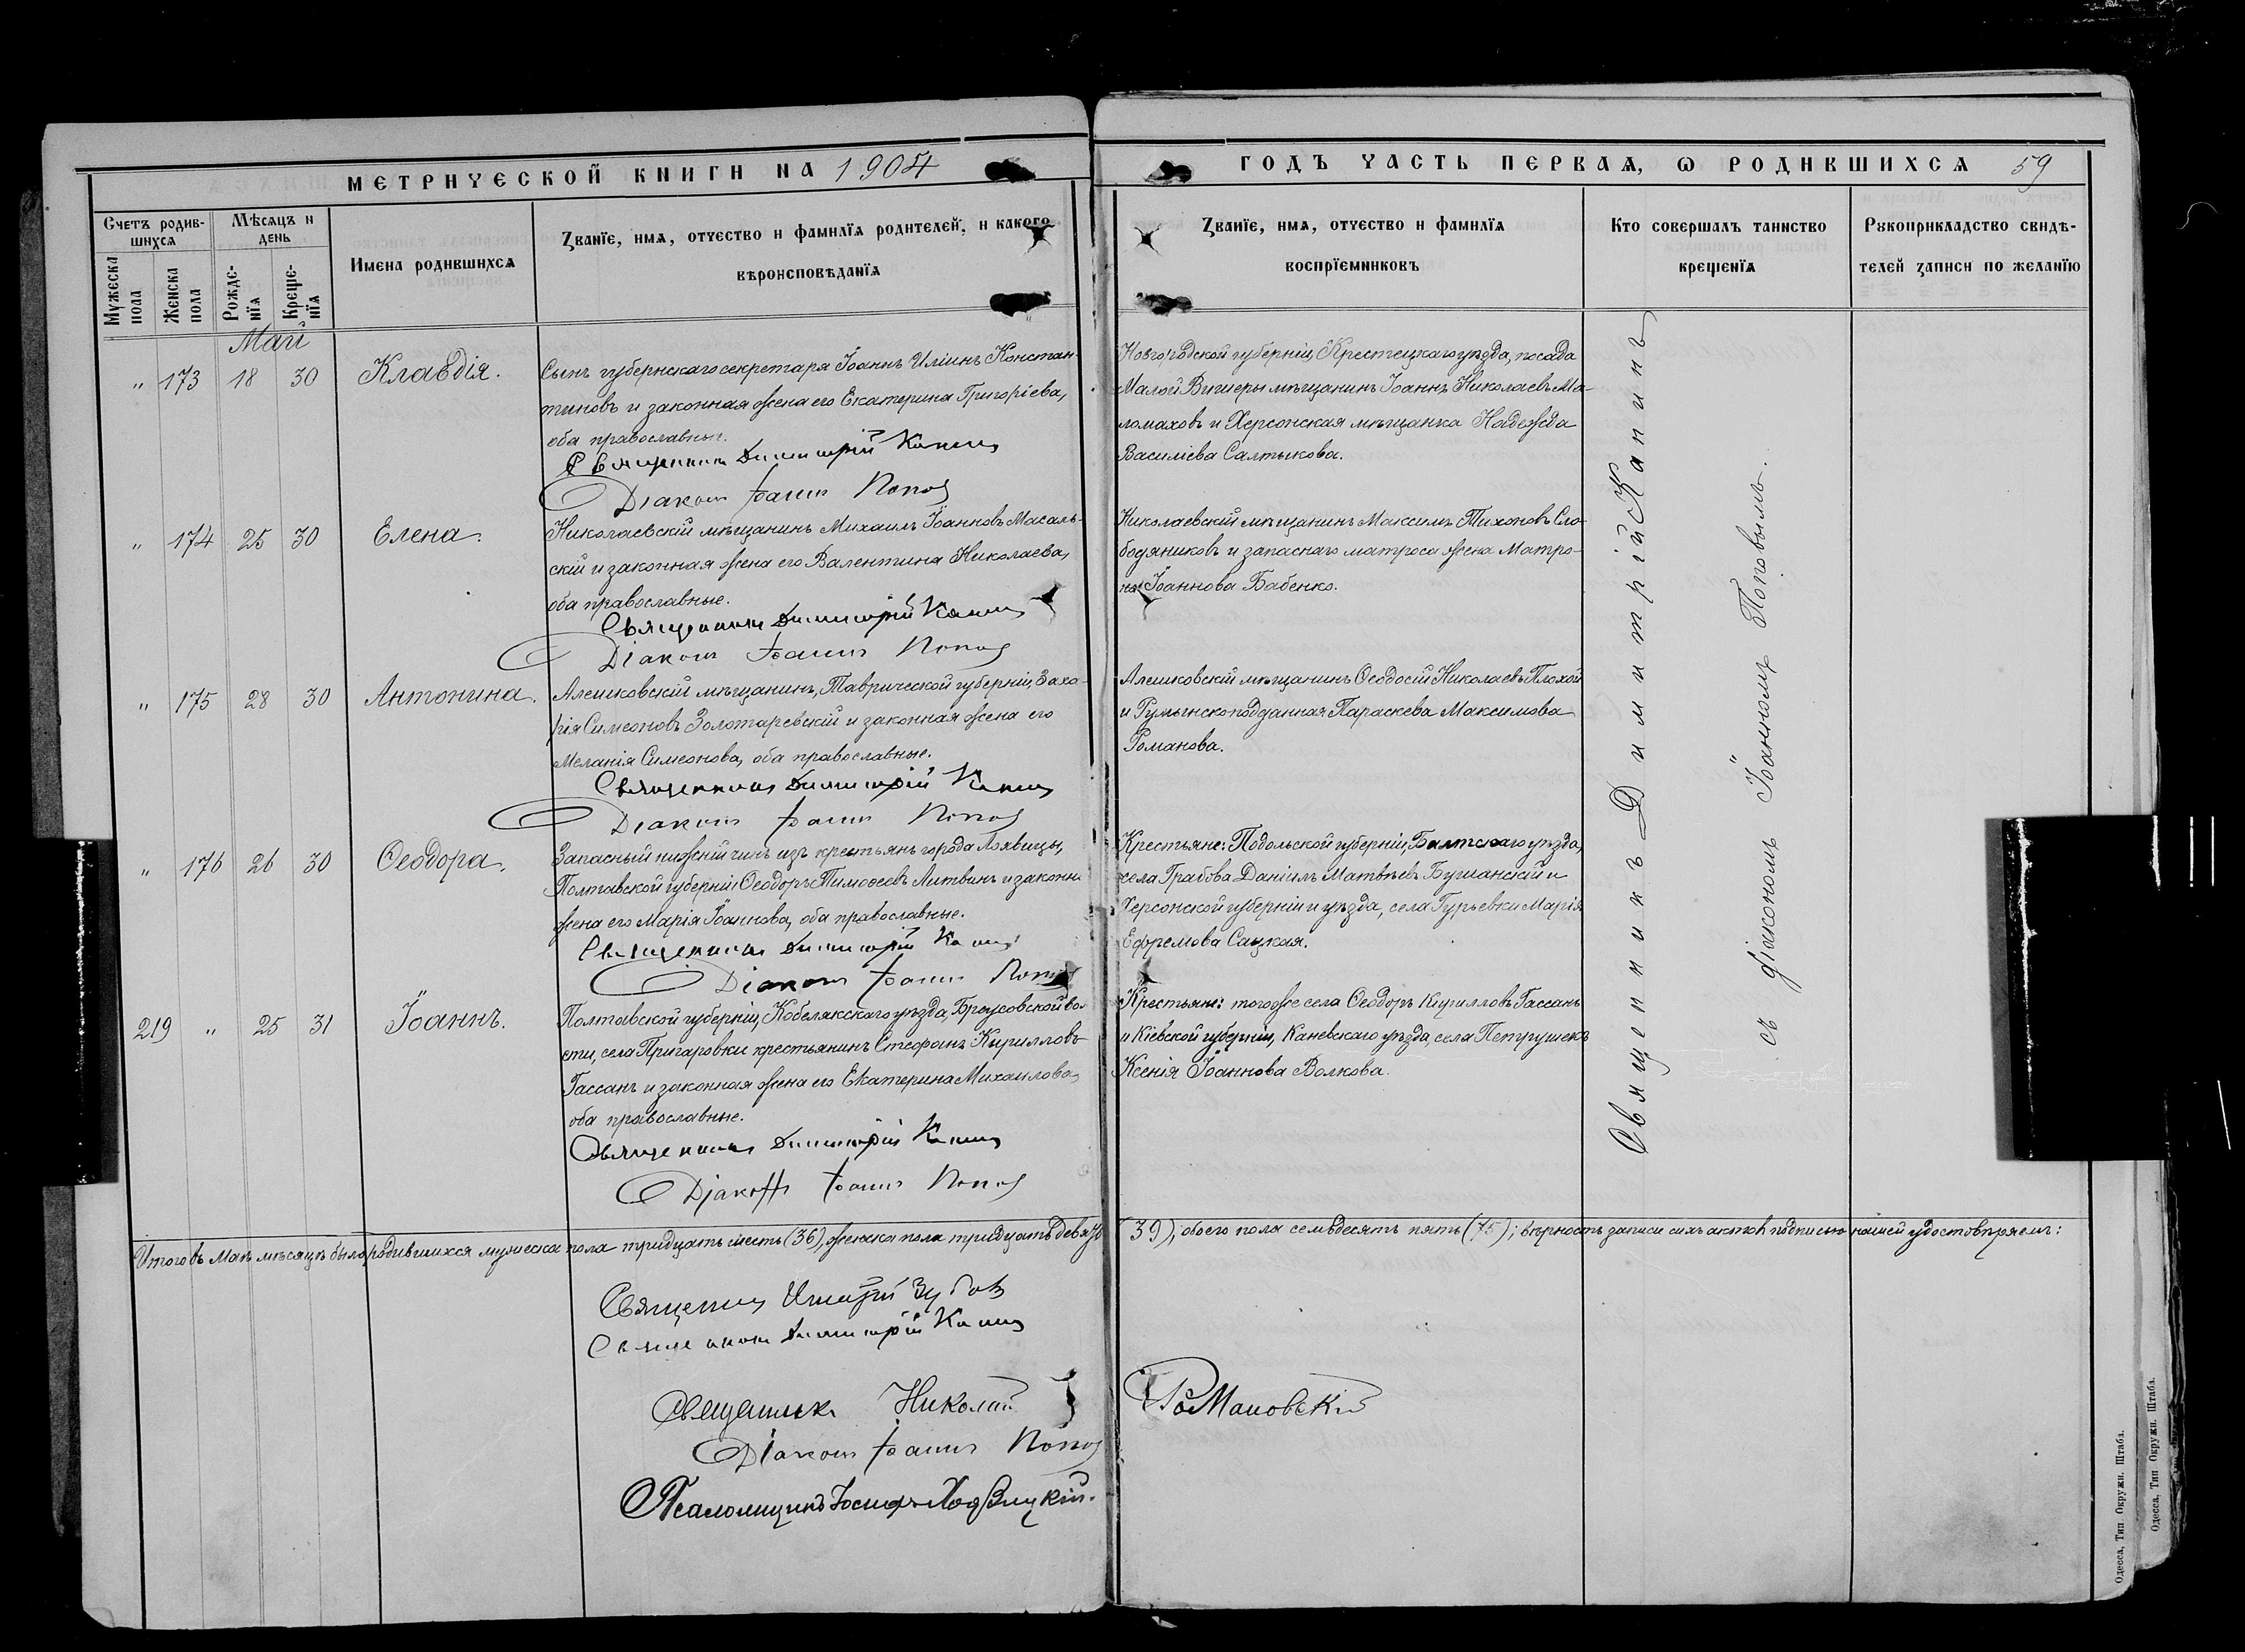 МЕТРИЧЕСКОЙ КНИГИ НА 1904
Счетъ родив-
шихся
Мѣсяцъ и
день
Мужеска
пола
Женска
пола
Рожде-
нїя
Креще-
нїя
Имена родившихся
Званїе, имя, отчество и фамилїя родителей, и какого
вѣроисповѣданїя
Май
„ 173 18 30 Клавдія.
Сынъ губернскаго секретаря Іоаннъ Иліинъ Констан-
тиновъ и законная жена его Екатерина Григоріева,
оба православны.
Священникъ Димитрій
Діаконъ Іоаннъ Попов
„ 174 25 30 Елена.
Николаевскій мѣщанинъ Михаилъ Іоанновъ Масаль-
скій и законная жена его Валентина Николаева,
оба православные.
Священникъ Димитрій
Діаконъ Іоаннъ Попов
„ 175 28 30 Антонина.
Алешковскій мѣщанинъ, Таврической губерніи, Заха-
рія Симеоновъ Золотаревскій и законная жена его
Меланія Симеонова, оба православные.
Священникъ Димитрій
Діаконъ Іоаннъ Попов
„ 176 26 30 Ѳеодора.
Запасный нижній чинъ изъ крестьянъ города Лохвицы,
Полтавской губерніи Ѳеодоръ Тимоѳеевъ Литвинъ и законн.
жена его Марія Іоаннова, оба православные.
Священникъ Димитрій
Діаконъ Іоаннъ Попов
219 „ 25 31 Іоаннъ.
Полтавской губерніи, Кобелякскаго уѣзда, во-
сти, села Пригаровки крестьянинъ Стефанъ Кирилловъ
Гассанъ и законная жена его Екатерина Михаилова,
оба православные.
Священникъ Димитрій
Діаконъ Іоаннъ Попов
Итого въ Маѣ мѣсяцѣ было родившихся мужеска пола тридцать шесть (36), женска пола тридцать девять
Священник Зубов
Священникъ Димитрій
Священникъ Николай
Діаконъ Іоаннъ Попов
Псаломщикъ Іосифъ
ГОДЪ ЧАСТЬ ПЕРВАЯ, Ѡ РОДИВШИХСЯ 59
Званїе, имя, отчество и фамилїя
воспрїемниковъ
Кто совершалъ таинство
крещенїя
Рукоприкладство свидѣ-
телей записи по желанїю
Новгородской губерніи, Крестецкаго уѣзда, посада
Малой Вишеры мѣщанинъ Іоаннъ Николаевъ Ма-
ломаховъ и Херсонская мѣщанка Надежда
Василіева Салтыкова.
Николаевскій мѣщанинъ Максимъ Тихоновъ Сло-
бодяниковъ и запаснаго матроса жена Матро-
на Іоаннова Бабенко.
Алешковскій мѣщанинъ Ѳеодосій Николаевъ Плохой
и Румынскоподданная Параскева Максимова
Романова.
Крестьяне: Подольской губерніи, Балтскаго уѣзда,
села Грабова Даніилъ Матвѣевъ Бушанскій и
Херсонской губерніи и уѣзда, села Гурьевки Марія
Ефремова Сацкая.
Крестьяне: того же села Ѳеодоръ Кирилловъ Гассанъ
и Кіевской губерніи, Каневскаго уѣзда, села
Ксенія Іоаннова Волкова.
Священникъ Димитрій
съ діакономъ Іоанномъ Поповымъ.
(39), обоего пола семьдесятъ пять (75); вѣрность записи сихъ актовъ подписью нашей удостовѣряемъ:
Романовскій
Одесса, Тип. Окружн. Штаба.
Одесса, Тип. Окружн. Штаба.